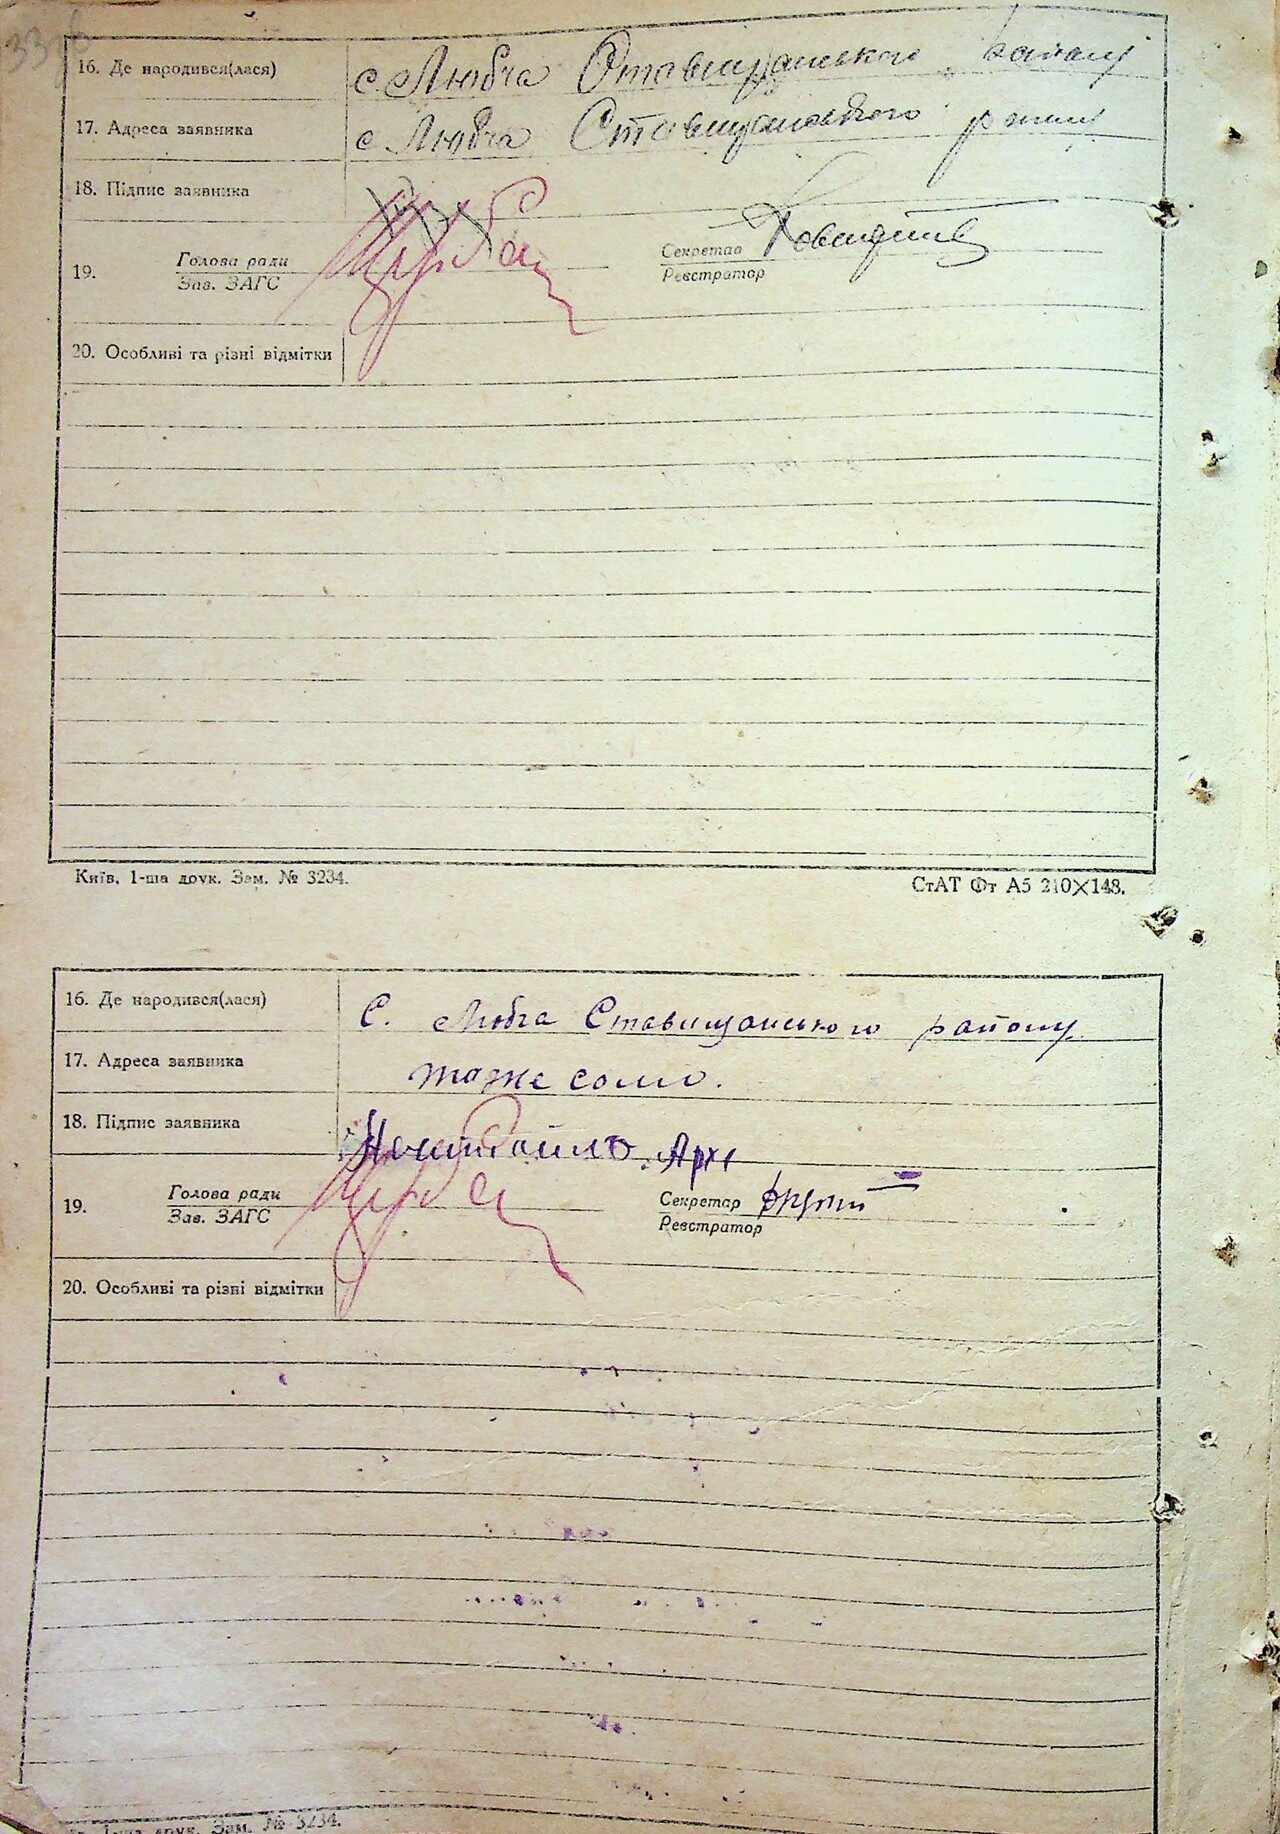 16. Де народився(лася) с. Любча Ставищанського району
17. Адреса заявника с. Любча Ставищанського району
18. Підпис заявника
19. Голова ради Секретар
Зав. ЗАГС Реєстратор
20. Особливі та різні відмітки
Київ. 1-ша друк. Зам. № 3234. СтАТ Фт А5 210×148.
16. Де народився(лася) С. Любча Ставищанського району
17. Адреса заявника таже село.
18. Підпис заявника
19. Голова ради Секретар
Зав. ЗАГС Реєстратор
20. Особливі та різні відмітки
друк. Зам. № 3234.